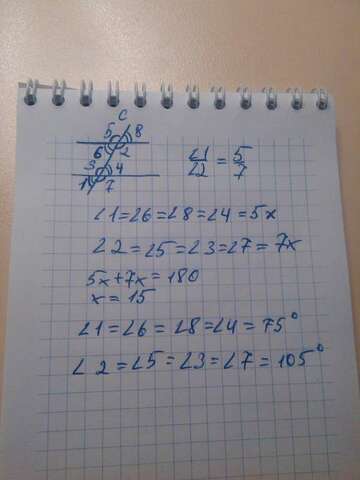 C
5 8
6 2
3 4
1 7
∠1/∠2 = 5/7
∠1=∠6=∠8=∠4=5x
∠2=∠5=∠3=∠7=7x
5x+7x=180
x=15
∠1=∠6=∠8=∠4=75°
∠2=∠5=∠3=∠7=105°